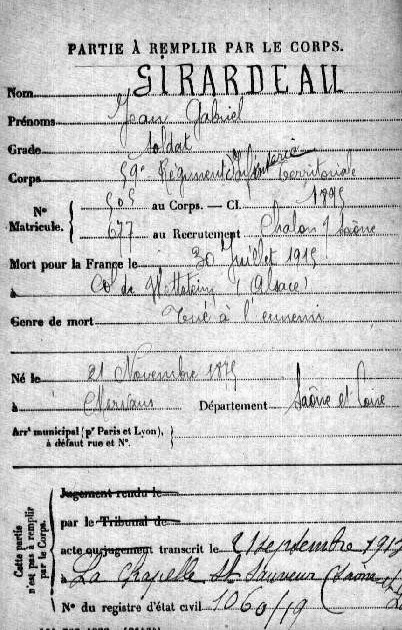 PARTIE À REMPLIR PAR LE CORPS.
Nom GIRARDEAU
Prénoms Jean Gabriel
Grade Soldat
Corps 59e Régiment d'Infanterie territoriale
No Matricule. { 505 au Corps. — Cl. 1895
677 au Recrutement Chalon s/ Saône
Mort pour la France le 30 Juillet 1915
à Col de Wettstein (Alsace)
Genre de mort Tué à l'ennemi
Né le 21 Novembre 1875
à Mervans Département Saône et Loire
Arrt municipal (pr Paris et Lyon), à défaut rue et No.
Cette partie n'est pas à remplir par le Corps.
Jugement rendu le
par le Tribunal de
acte ou jugement transcrit le 21 septembre 191
à La Chapelle St Sauveur (Saône
No du registre d'état civil 1060/19